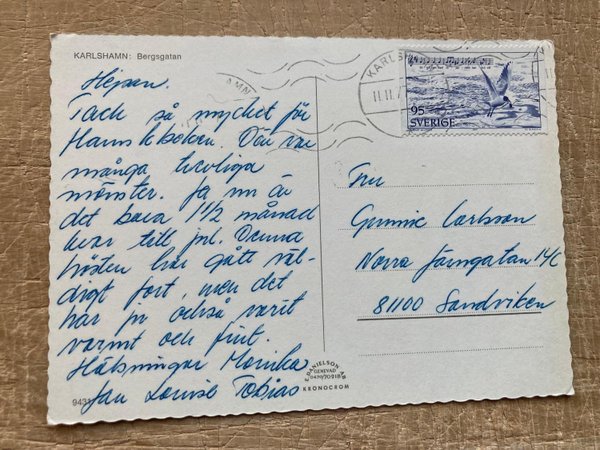 KARLSHAMN: Bergsgatan
Hejsan.
Tack så mycket för
boken. Där var
många trevliga
mönster. Ja nu är
det bara 1 1/2 månad
kvar till jul. Denna
hösten har gått väl-
digt fort, men det
har ju också varit
varmt och fint.
Hälsningar Monika
Jan Louise Tobias
9431
AMN
KARLSH
11.11.7
95
SVERIGE
Fru
Gunnie Carlsson
Norra Järngatan 14C
81100 Sandviken
E. DANIELSON AB
GENEVAD
0430/70918
KRONOCROM